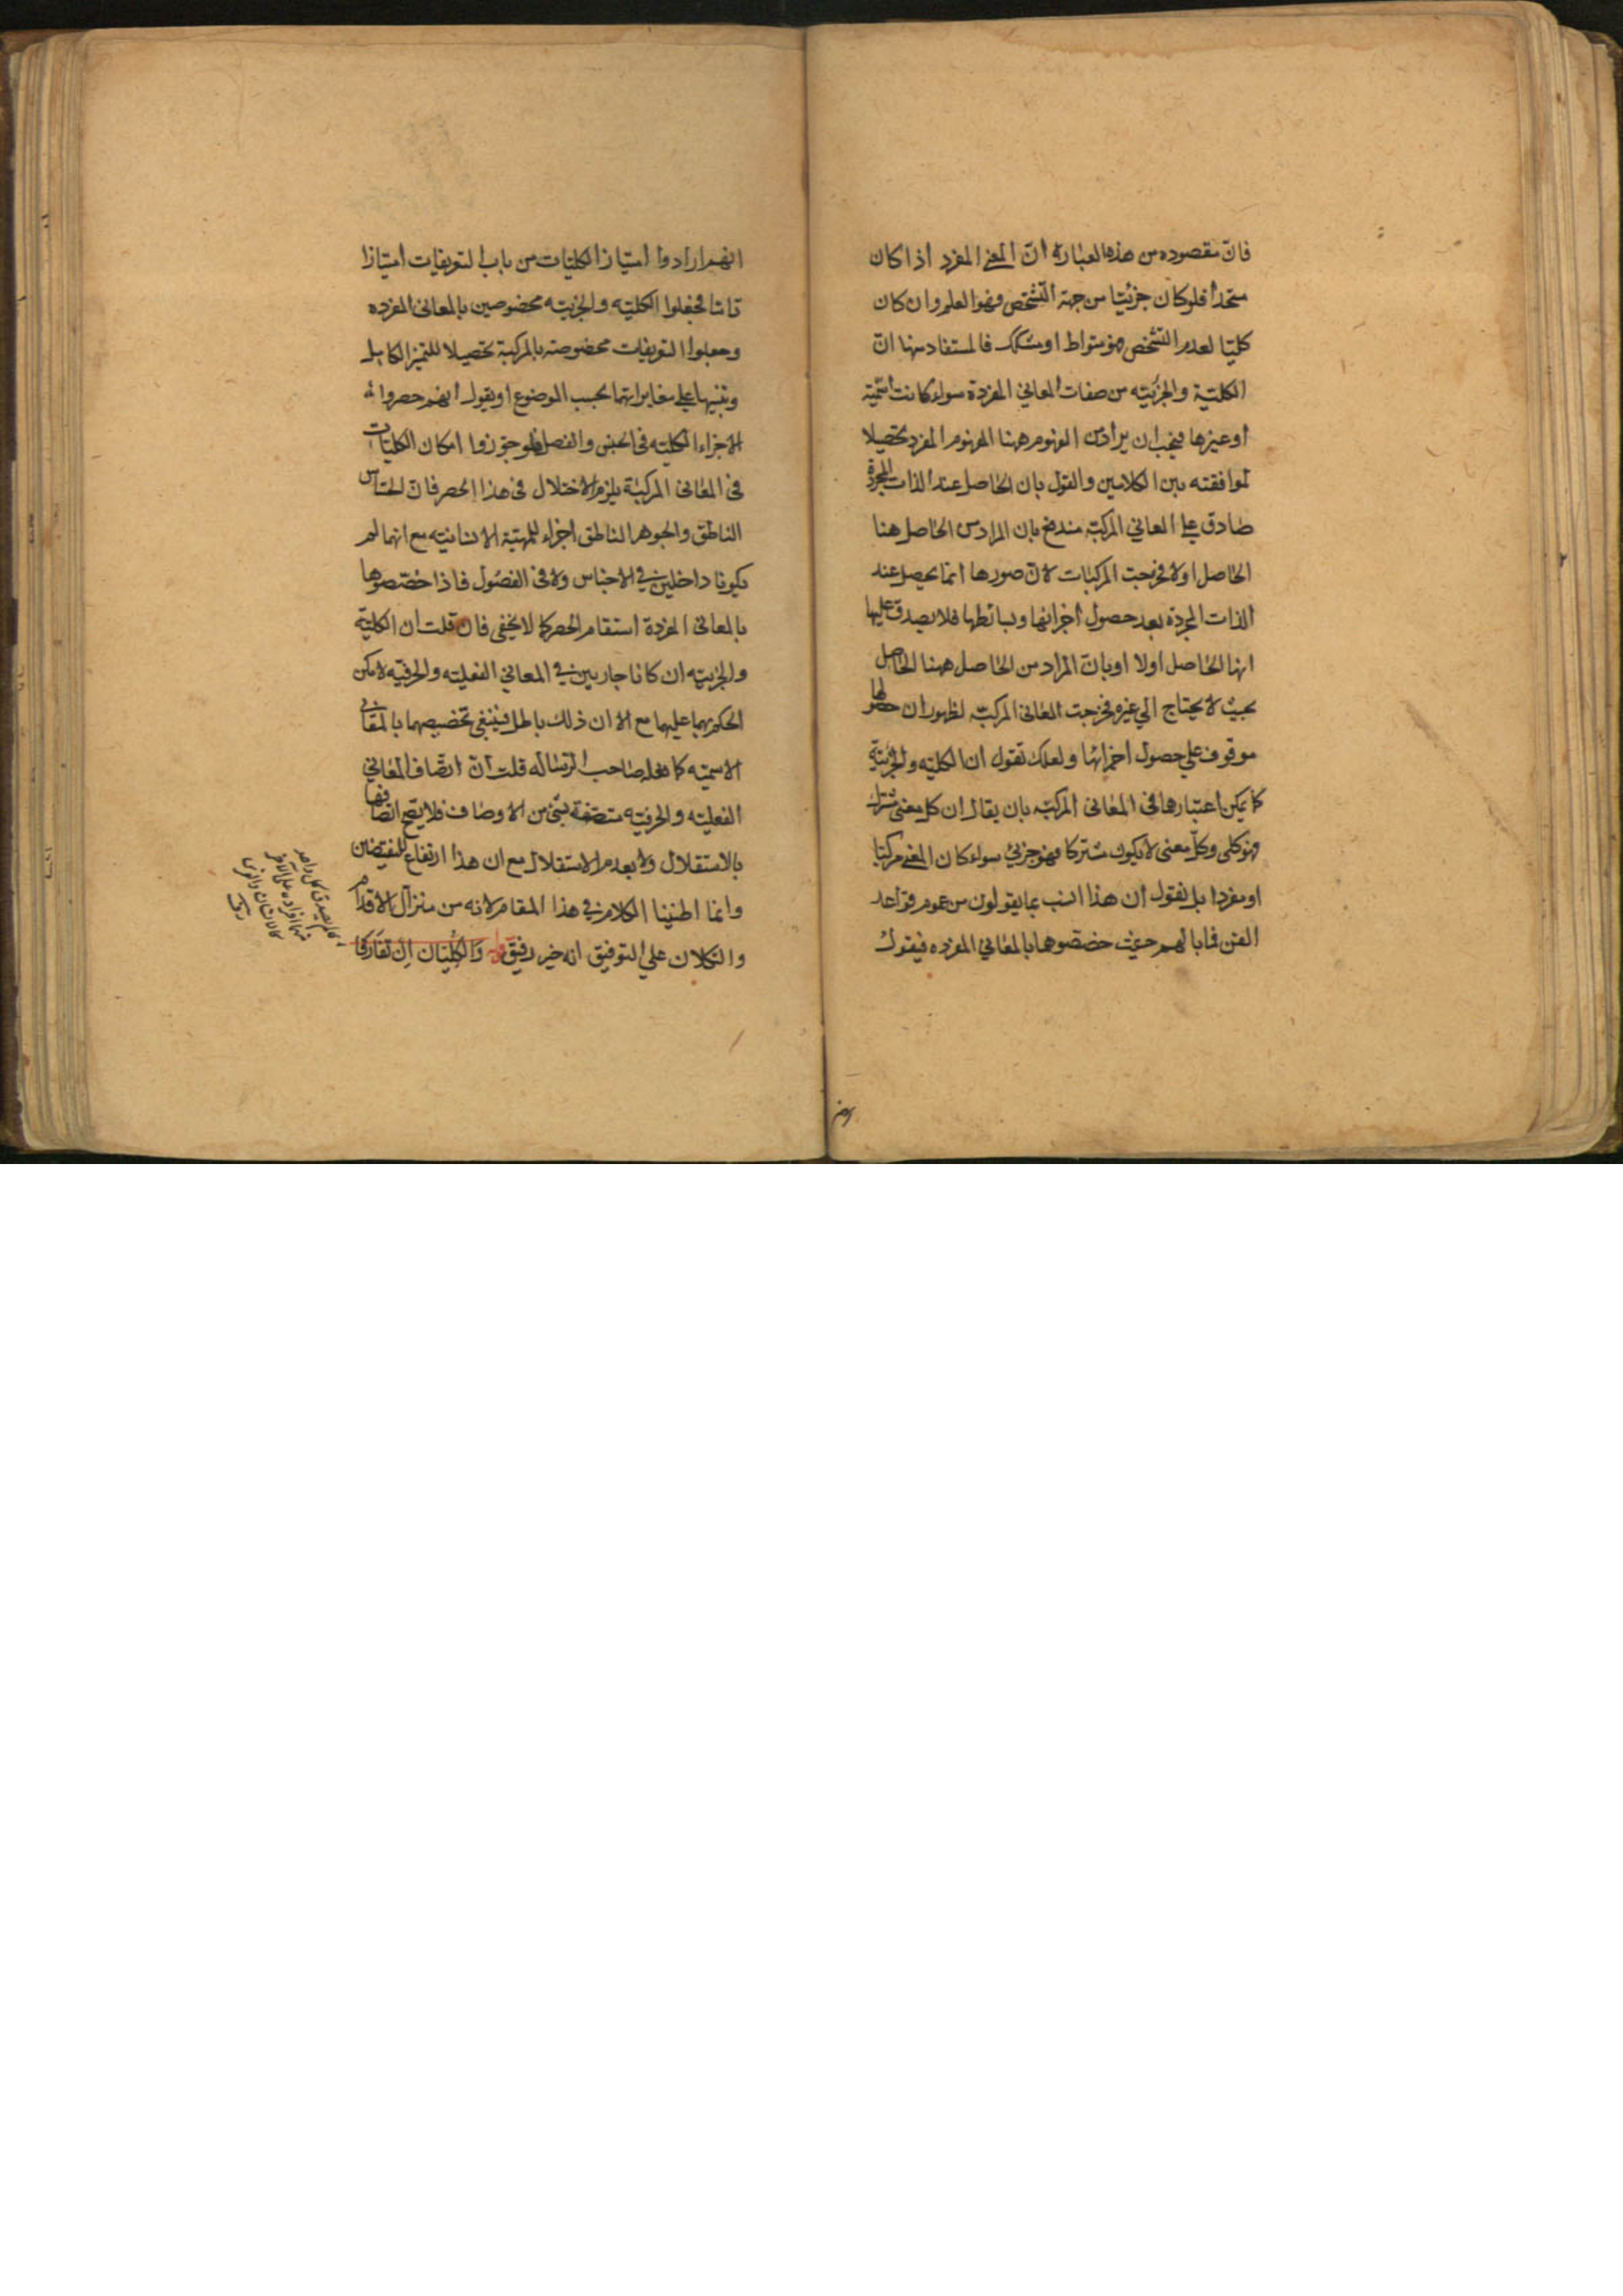 فان مقصوده من هذه العبارة ان المعني المفرد اذا كان
متحدا فلو كان جزئيا من جهة التشخص فهو العلم وان كان
كليا لعدم التشخص فهو متواط او مشكك فالمستفاد منها ان
الكلية والجزئية من صفات المعاني المفردة سواء كانت اسمية
او غيرها فيجب ان يراد من المفهوم ههنا المفهوم المفرد تحصيلا
لموافقته بين الكلامين والقول بان الحاصل عند الذات المجردة
صادق علي المعاني المركبة مندفع بان المراد من الحاصل هنا
الحاصل اولا فخرجت المركبات لان صورها انما يحصل عند
الذات المجردة بعد حصول اجزائها وبسائطها فلا يصدق عليها
انها الحاصل اولا او بان المراد من الحاصل ههنا الحاصل
بحيث لا يحتاج الي غيره فخرجت المعاني المركبة لظهور ان حصولها
موقوف علي حصول اجزائها ولعلك تقول ان الكلية والجزئية
كما يمكن اعتبارها في المعاني المركبة بان يقال ان كل معني مشترك
فهو كلي وكل معني لا يكون مشتركا فهو جزئي سواء كان المعني مركبا
او مفردا بل نقول ان هذا انسب بما يقولون من عموم قواعد
الفن فما بالهم حيث خصصوها بالمعاني المفرده فيقول
انهم ارادوا امتياز الكليات من باب التعريفات امتيازا
تاما فجعلوا الكلية والجزئية مخصوصين بالمعاني المفرده
وجعلوا التعريفات مخصوصة بالمركبة تحصيلا للتميز الكامل
وتنبيها علي مغايرتهما بحسب الموضوع او يقول انهم حصروا
الاجزاء الكلية في الجنس والفصل فلو جوزوا امكان الكليات
في المعاني المركبة يلزم الاختلال في هذا الحصر فان الحساس
الناطق والجوهر الناطق اجزاء للمهية الانسانية مع انهما لم
يكونا داخلين في الاجناس ولا في الفصول فاذا خصصوها
بالمعاني المفردة استقام الحصر كما لا يخفي فان قلت ان الكلية
والجزئية ان كانا جاريين في المعاني الفعلية والحرفية لامكن
الحكم بهما عليهما مع الا ان ذلك باطل فينبغي تخصيصهما بالمعاني
الاسمية كما فعله صاحب الرسالة قلت ان اتصاف المعاني
الفعلية والحرفية متصفة بشئ من الاوصاف فلا يصح اتصافها
بالاستقلال ولا بعدم الاستقلال مع ان هذا ارتفاع للنقيضين
وانما اطنبنا الكلام في هذا المقام لانه من منزال الاقدام
والتكلان علي التوفيق انه خير رفيق قوله والكليان ان تفارقا
كلم يصدق كل واحد
منهما افراده علي الاخر
كالانسان والفرس